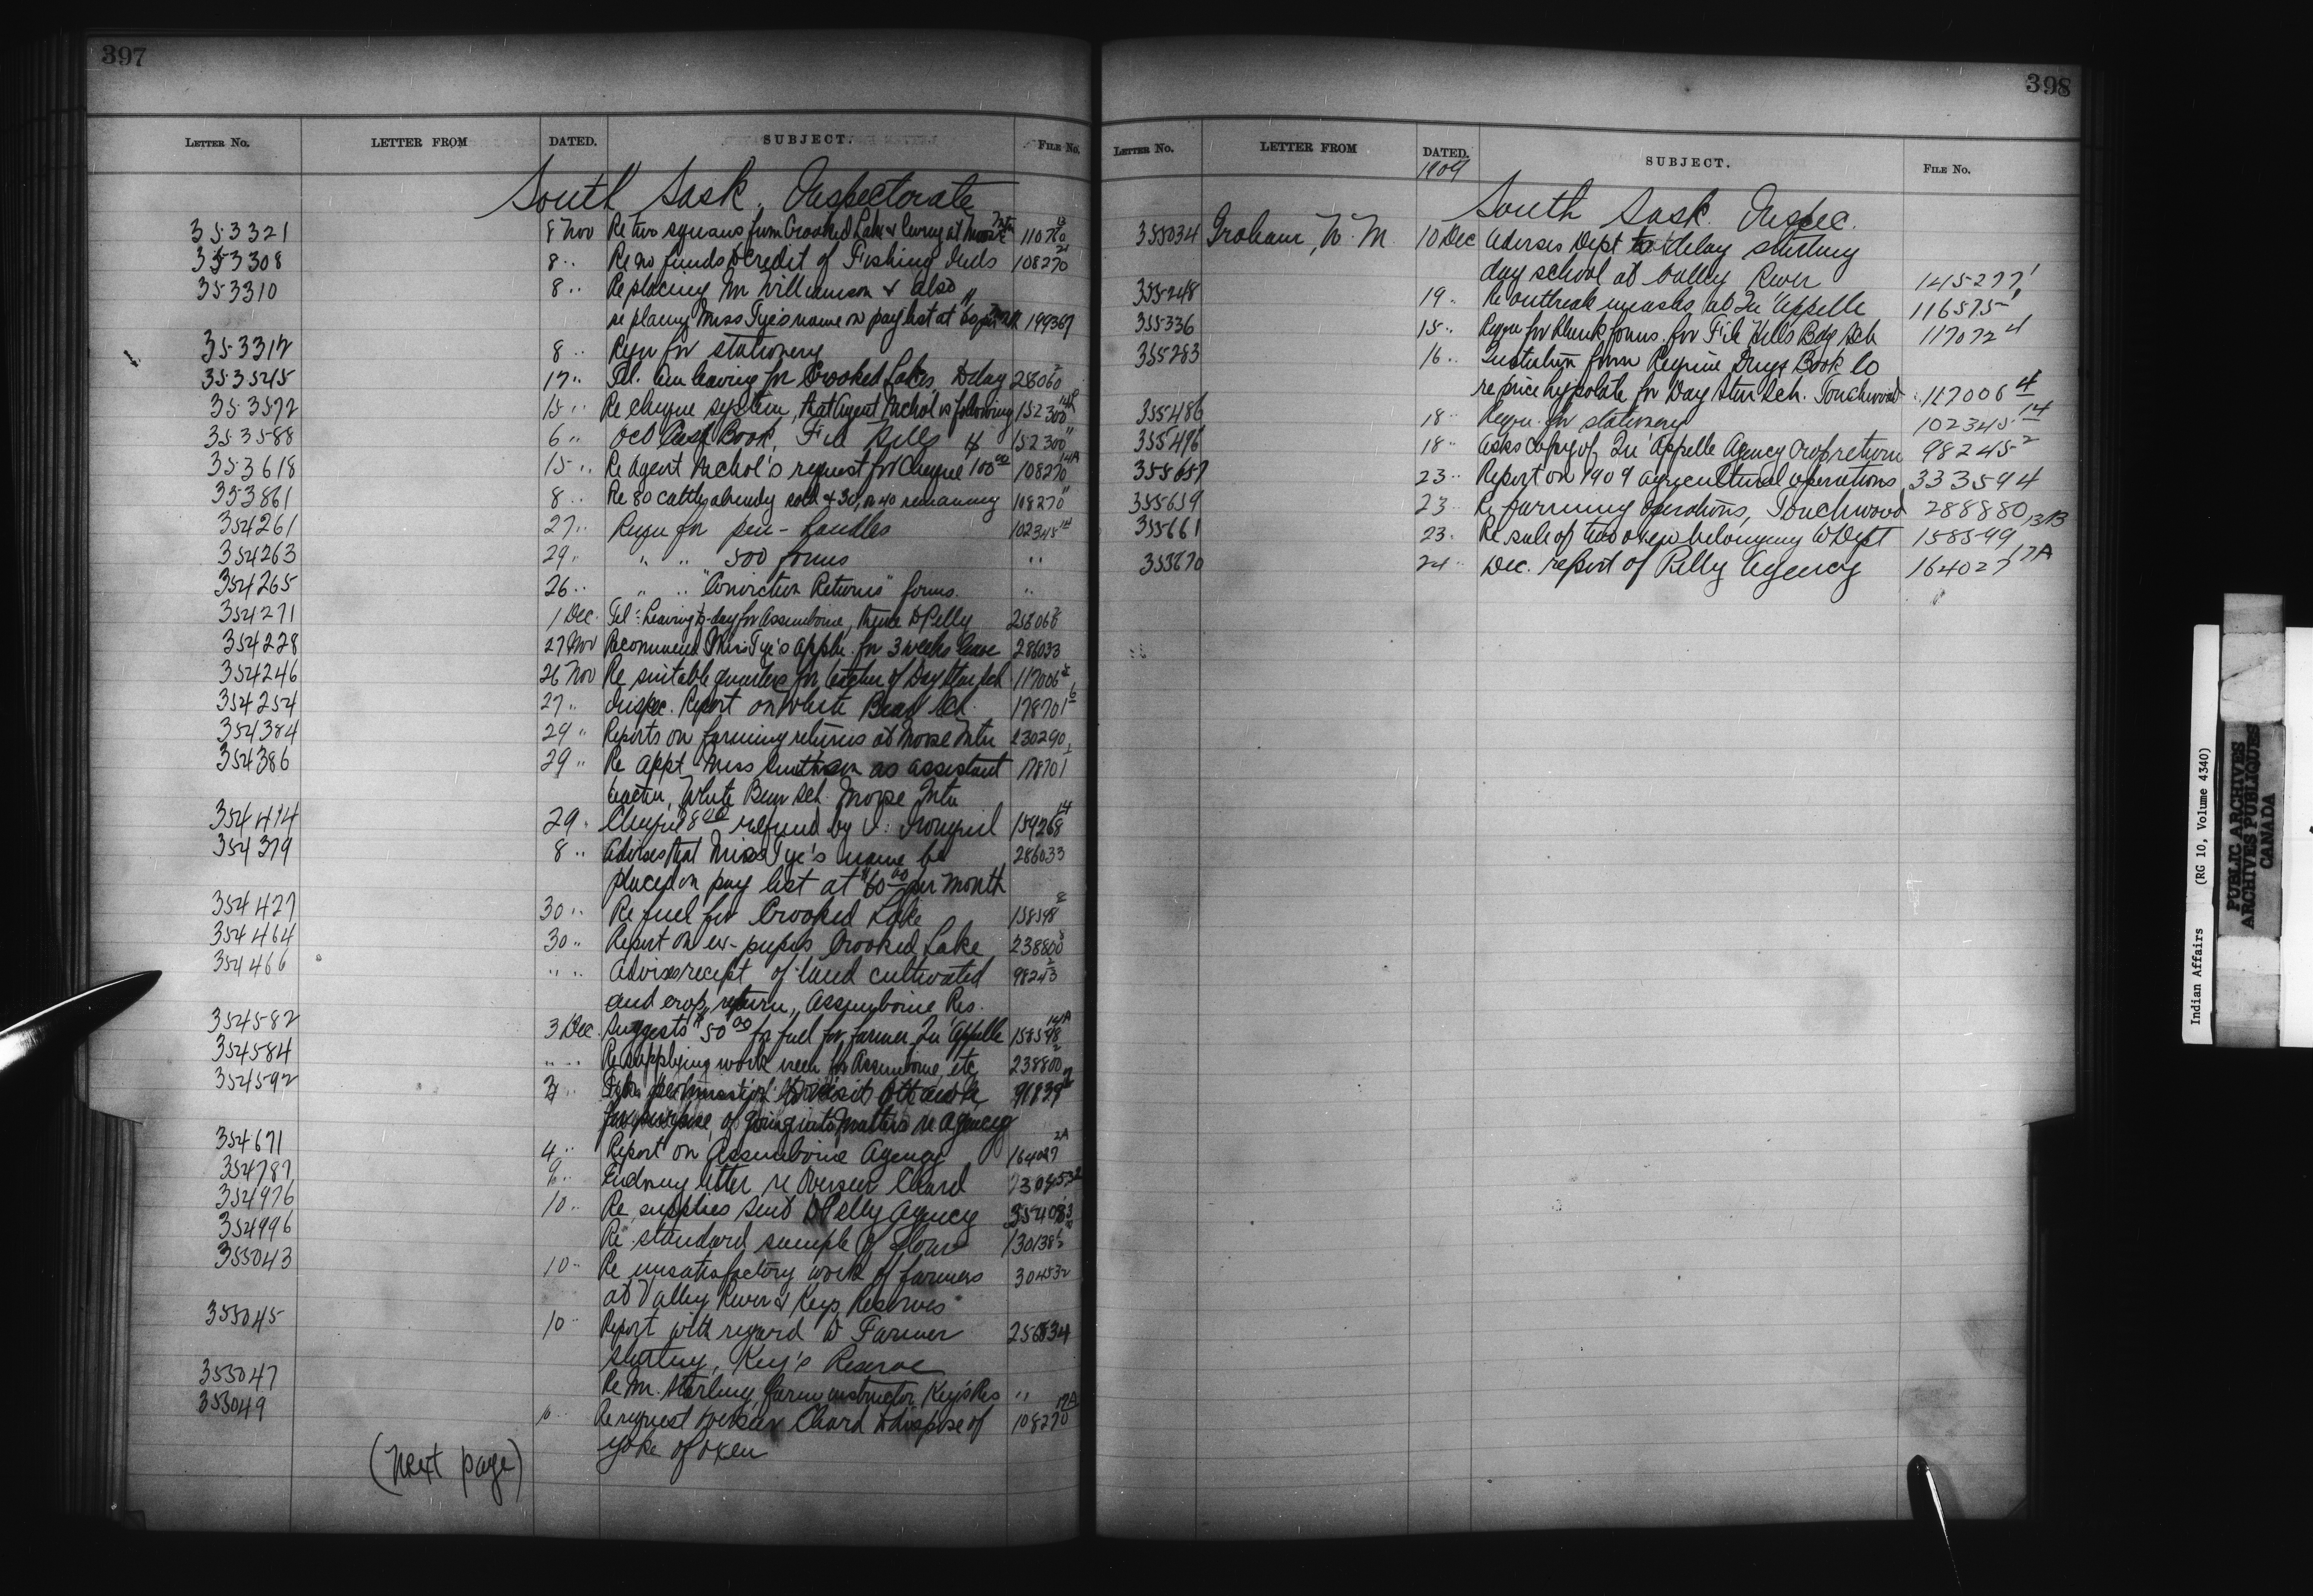 397
LETTER NO. LETTER FROM DATED. SUBJECT. FILE No.
South Sask. Inspectorate
353321 8 Nov Re two squaws from Crooked Lake living at Moose Mtn 110770
353308 8 " Re no funds to credit of Fishing Inds 108270
353310 8 " Re placing Mr Williamson & also
re placing Miss Tye's name on pay list at 60 199367
353312 8 " Reqn for stationery
353545 17 " Tel. Am leaving for Crooked Lakes to day 28060
353572 15 " Re cheque system, that Agent Nichol is following 152300
353588 6 " Oct Cash Book, File Hills 152300
353618 15 " Re Agent Nichol's request for cheque 100 00 108270 14A
353861 8 " Re 80 cattle already sold & 30, or 40 remaining 108270
354261 27 " Reqn for pen-handles 102345 14
354263 29 " " " 500 forms "
354265 26 " " " "Conviction Returns" forms. "
354271 1 Dec. Tel: Leaving to-day for Assiniboine, thence to Pelly
354228 27 Nov Recommend Miss Tye's appln. for 3 weeks leave 286033
354246 26 Nov Re suitable quarters for teacher of Day Star sch 117006
354254 27 " Inspec. Report on White Bear Sch. 178701
354384 29 " Reports on farming returns at Moose Mtn 230290
354386 29 " Re appt Miss as assistant 178701
teacher, White Bear Sch. Moose Mtn
354414 29 " Cheque $8 00 refund by 159268 14
354379 8 " Advises that Miss Tye's name be 286033
placed on pay list at $60 00 per month
354427 30 " Re fuel for Crooked Lake 158598
354464 30 " Report on ex-pupils Crooked Lake 238800
354466 " " Advises receipt of land cultivated 98245
and crop return, Assiniboine Res.
354582 3 Dec. Suggests $50 00 for fuel for farmer Qu'Appelle 158598 14A
354584 " " Re supplying work for Assiniboine, etc 238800
354592 3 " permission to visit Ottawa
for purpose of going into matters re agency
354671 4 " Report on Assiniboine Agency 164027 2A
354787 9 " Endrsing letter re Overseer Chard
354976 10 " Re supplies sent to Pelly Agency
354996 Re standard sample of flour 130138
355043 10 " Re unsatisfactory work of farmers 304532
at Valley River & Keys Reserves
355045 10 " Report with regard to Farmer 256834
Sterling, Key's Reserve
355047 Re Mr. Sterling, farm instructor, Key's Res "
355049 10 " Re request Overseer Chard to dispose of 108270 17A
yoke of oxen
(next page)
398
LETTER No. LETTER FROM DATED. SUBJECT. FILE No.
1909
South Sask. Inspec.
355034 Graham, W. M. 10 Dec Advises Dept to delay starting
day school at Valley River 145277 1
355248 19 " Re outbreak measles at Qu'Appelle 116575 1
355336 15 " Reqn for blank forms for File Hills Bdg Sch 117072 4
355283 16 " Quotation from Regina Drug & Book Co
re price hyloplate for Day Star Sch. Touchwood 117006 4
355486 18 " Reqn. for stationery 102345 14
355496 18 " Asks copy of Qu'Appelle Agency crop return 98245 2
355657 23 " Report on 1909 agricultural operations 333594
355659 23 " Re farming operations, Touchwood 288880
355661 23 " Re sale of two oxen belonging to Dept 158599 13B
355670 24 " Dec. report of Pelly Agency 164027 17A
Indian Affairs (RG 10, Volume 4340)
PUBLIC ARCHIVES
ARCHIVES PUBLIQUES
CANADA